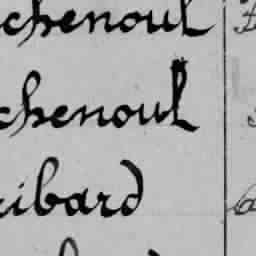 chenoul
chenoul
ribard